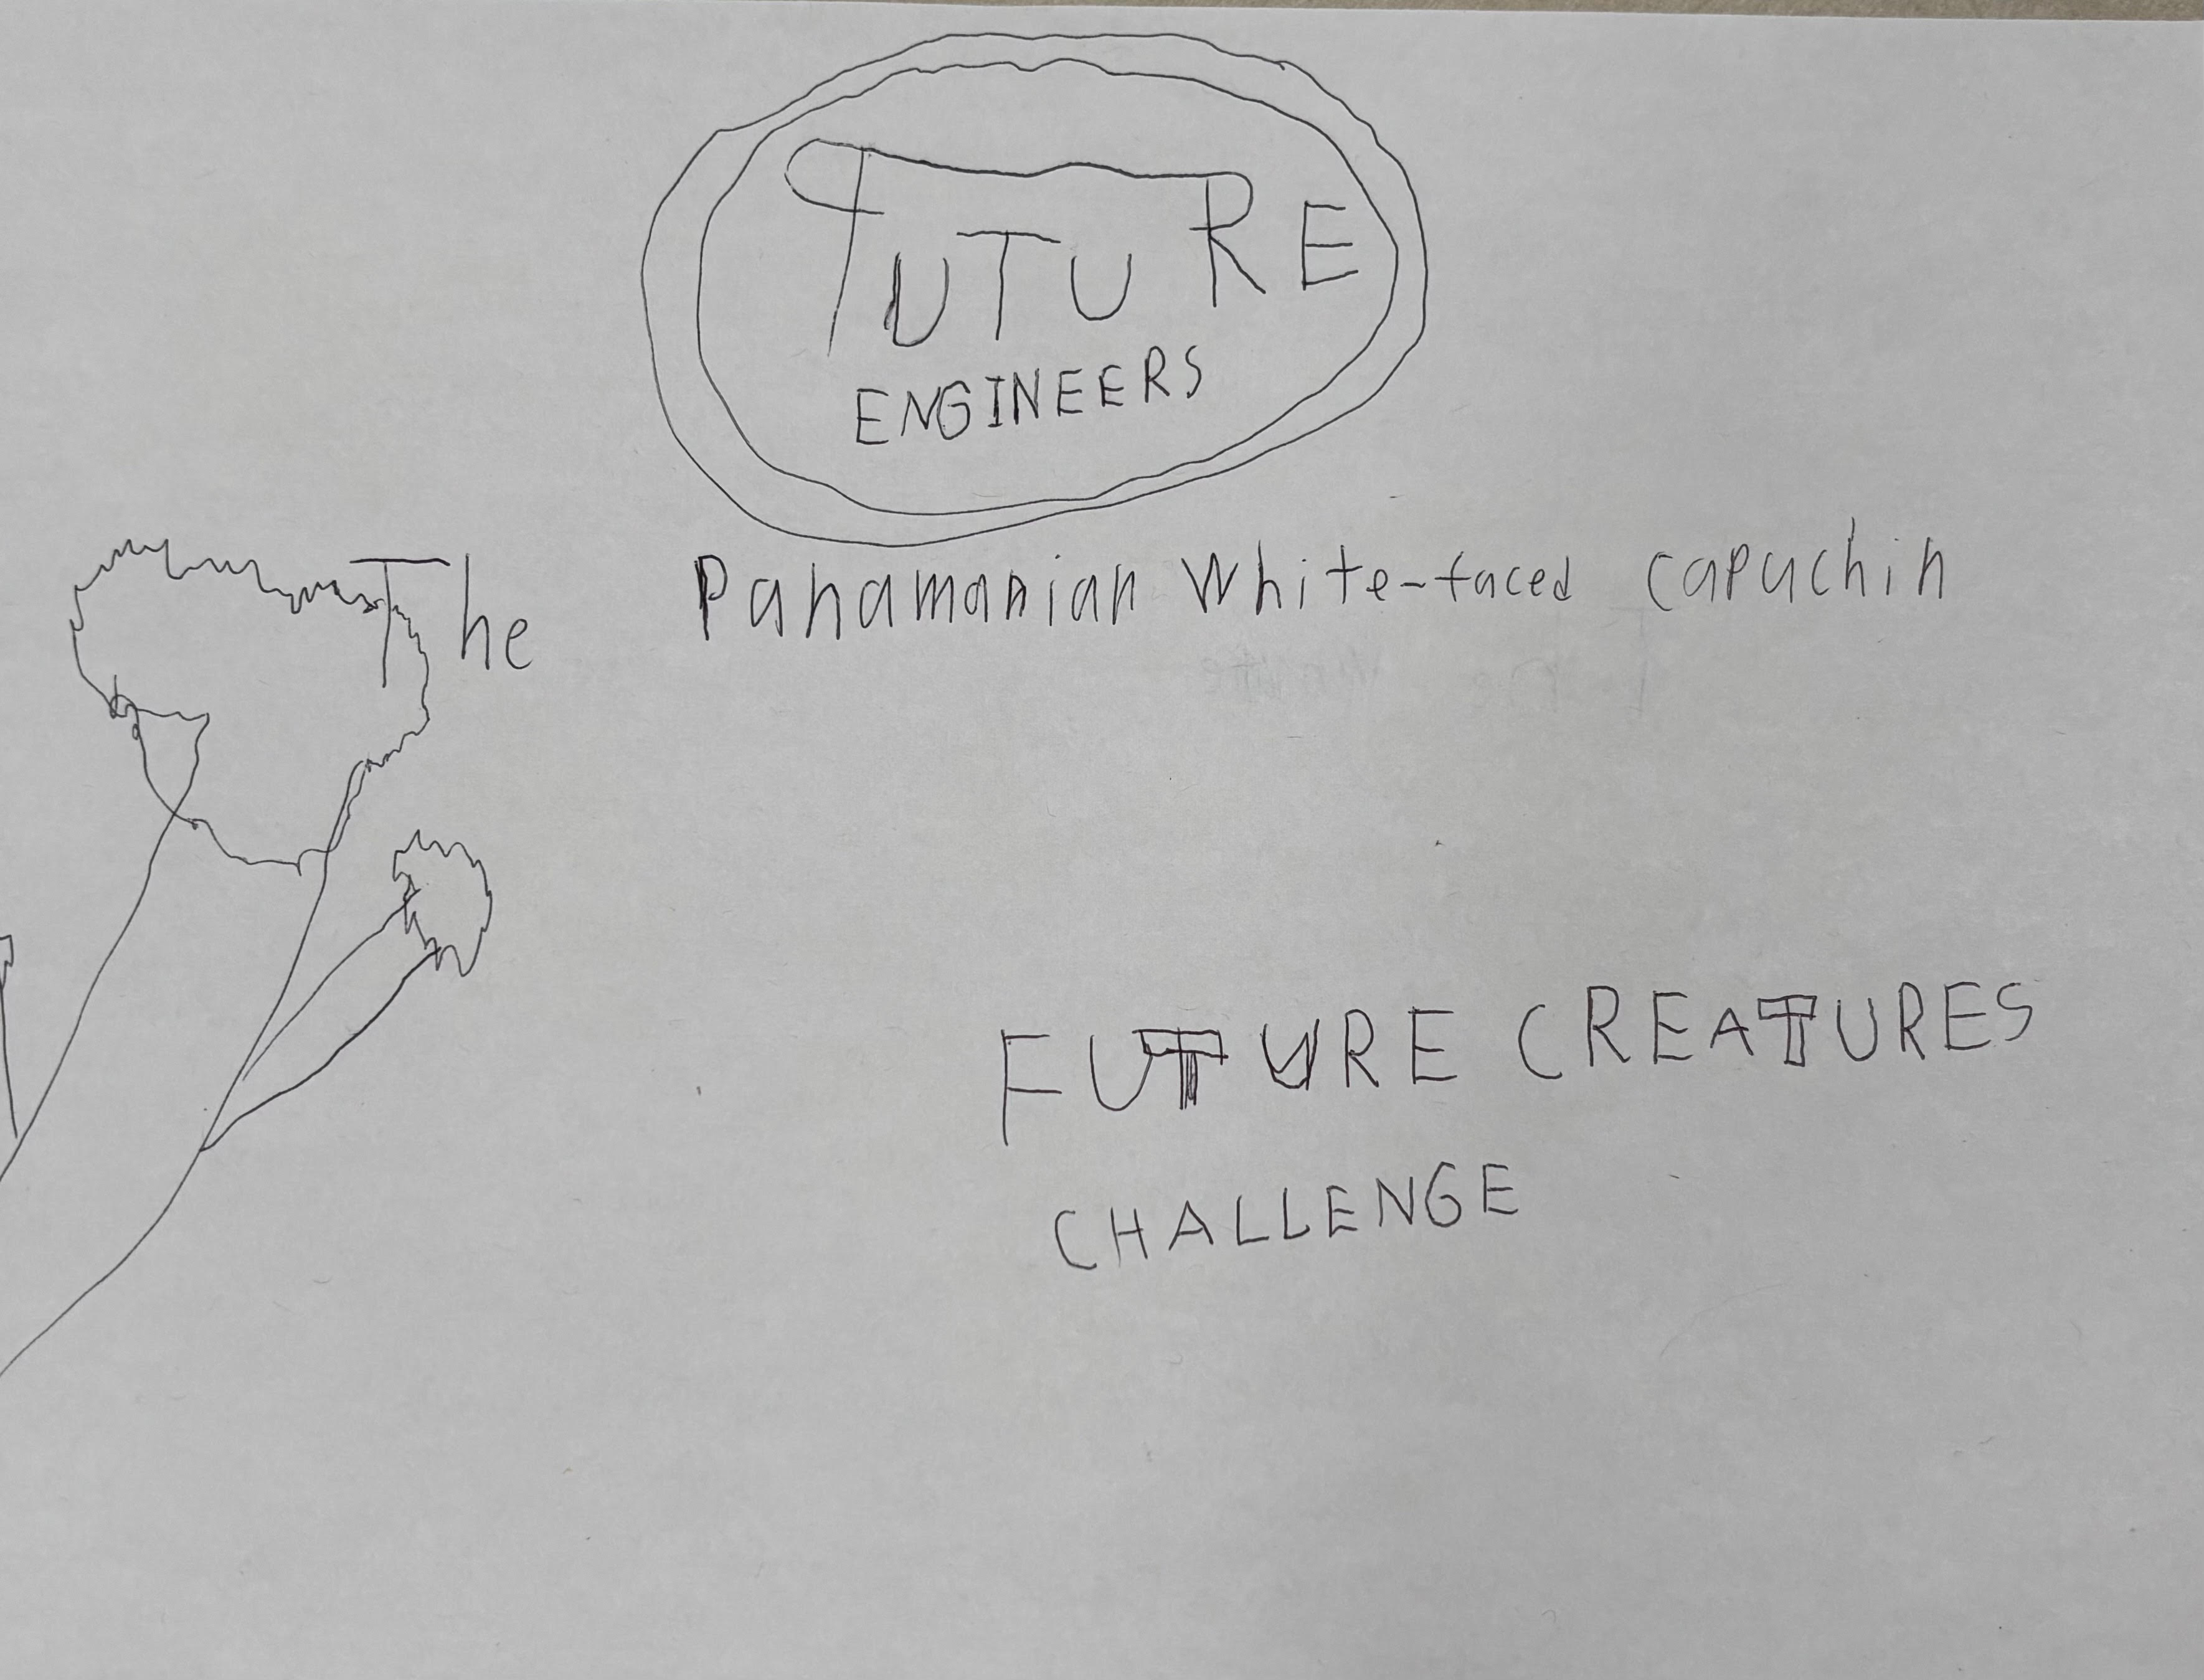 FUTURE
ENGINEERS
The Panamanian White-faced capuchin
FUTURE CREATURES
CHALLENGE